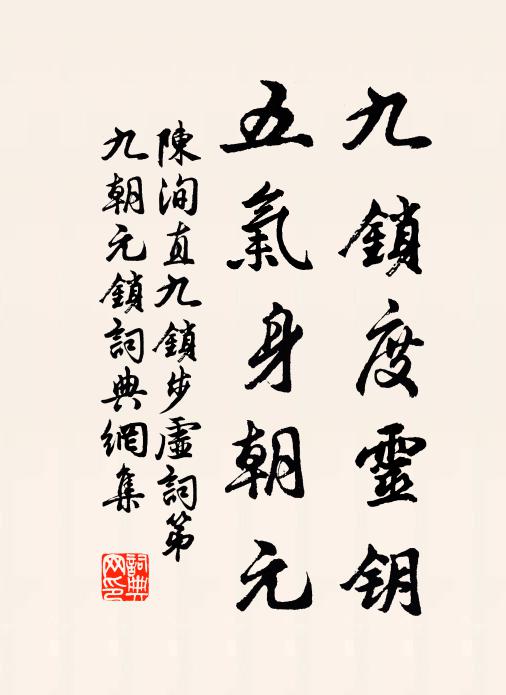 九鎖度靈钥
五氣身朝元
陳洵直九鎖步虛詞第
九朝元鎖詞典網集
詞典网印